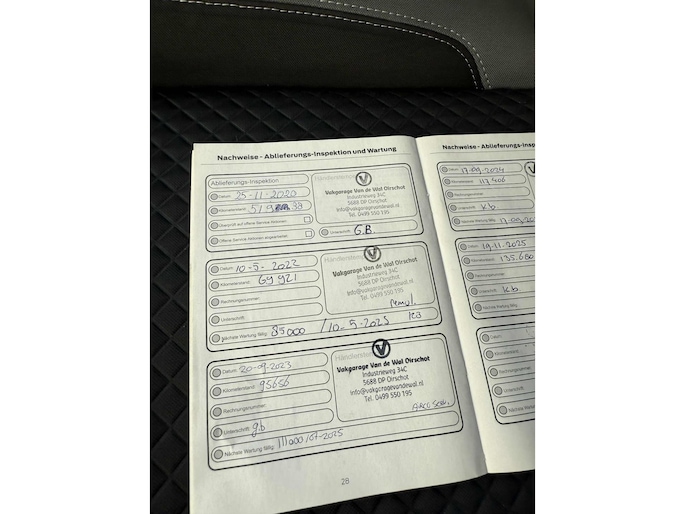 Nachweise - Ablieferungs-Inspektion und Wartung
Ablieferungs-Inspektion
Datum: 25-11-2020
Kilometerstand:
Überprüft auf offene Service Aktionen:
Offene Service Aktionen abgearbeitet:
Unterschrift: G.B.
Händlerstempel
Vakgarage Van de Wal Oirschot
Industrieweg 34C
5688 DP Oirschot
info@vakgaragevandewal.nl
Tel. 0499 550 195
Datum: 10-5-2022
Kilometerstand: 69921
Rechnungsnummer:
Unterschrift:
Nächste Wartung fällig: 85000 / 10-5-2023
Händlerstempel
Vakgarage Van de Wal Oirschot
Industrieweg 34C
5688 DP Oirschot
info@vakgaragevandewal.nl
Tel. 0499 550 195
Datum: 20-09-2023
Kilometerstand: 95656
Rechnungsnummer:
Unterschrift: gb
Nächste Wartung fällig: 111000/09-2025
Händlerstempel
Vakgarage Van de Wal Oirschot
Industrieweg 34C
5688 DP Oirschot
info@vakgaragevandewal.nl
Tel. 0499 550 195
28
Nachweise - Ablieferungs-Ins
Datum: 17-09-2024
Kilometerstand: 117.406
Rechnungsnummer:
Unterschrift: kb
Nächste Wartung fällig: 17-09-20
Datum: 19-11-2025
Kilometerstand: 135.680
Rechnungsnummer:
Unterschrift: kb
Nächste Wartung fällig:
Datum:
Kilometerstand:
Rechnungsnummer:
Unterschrift:
Nächste Wartung